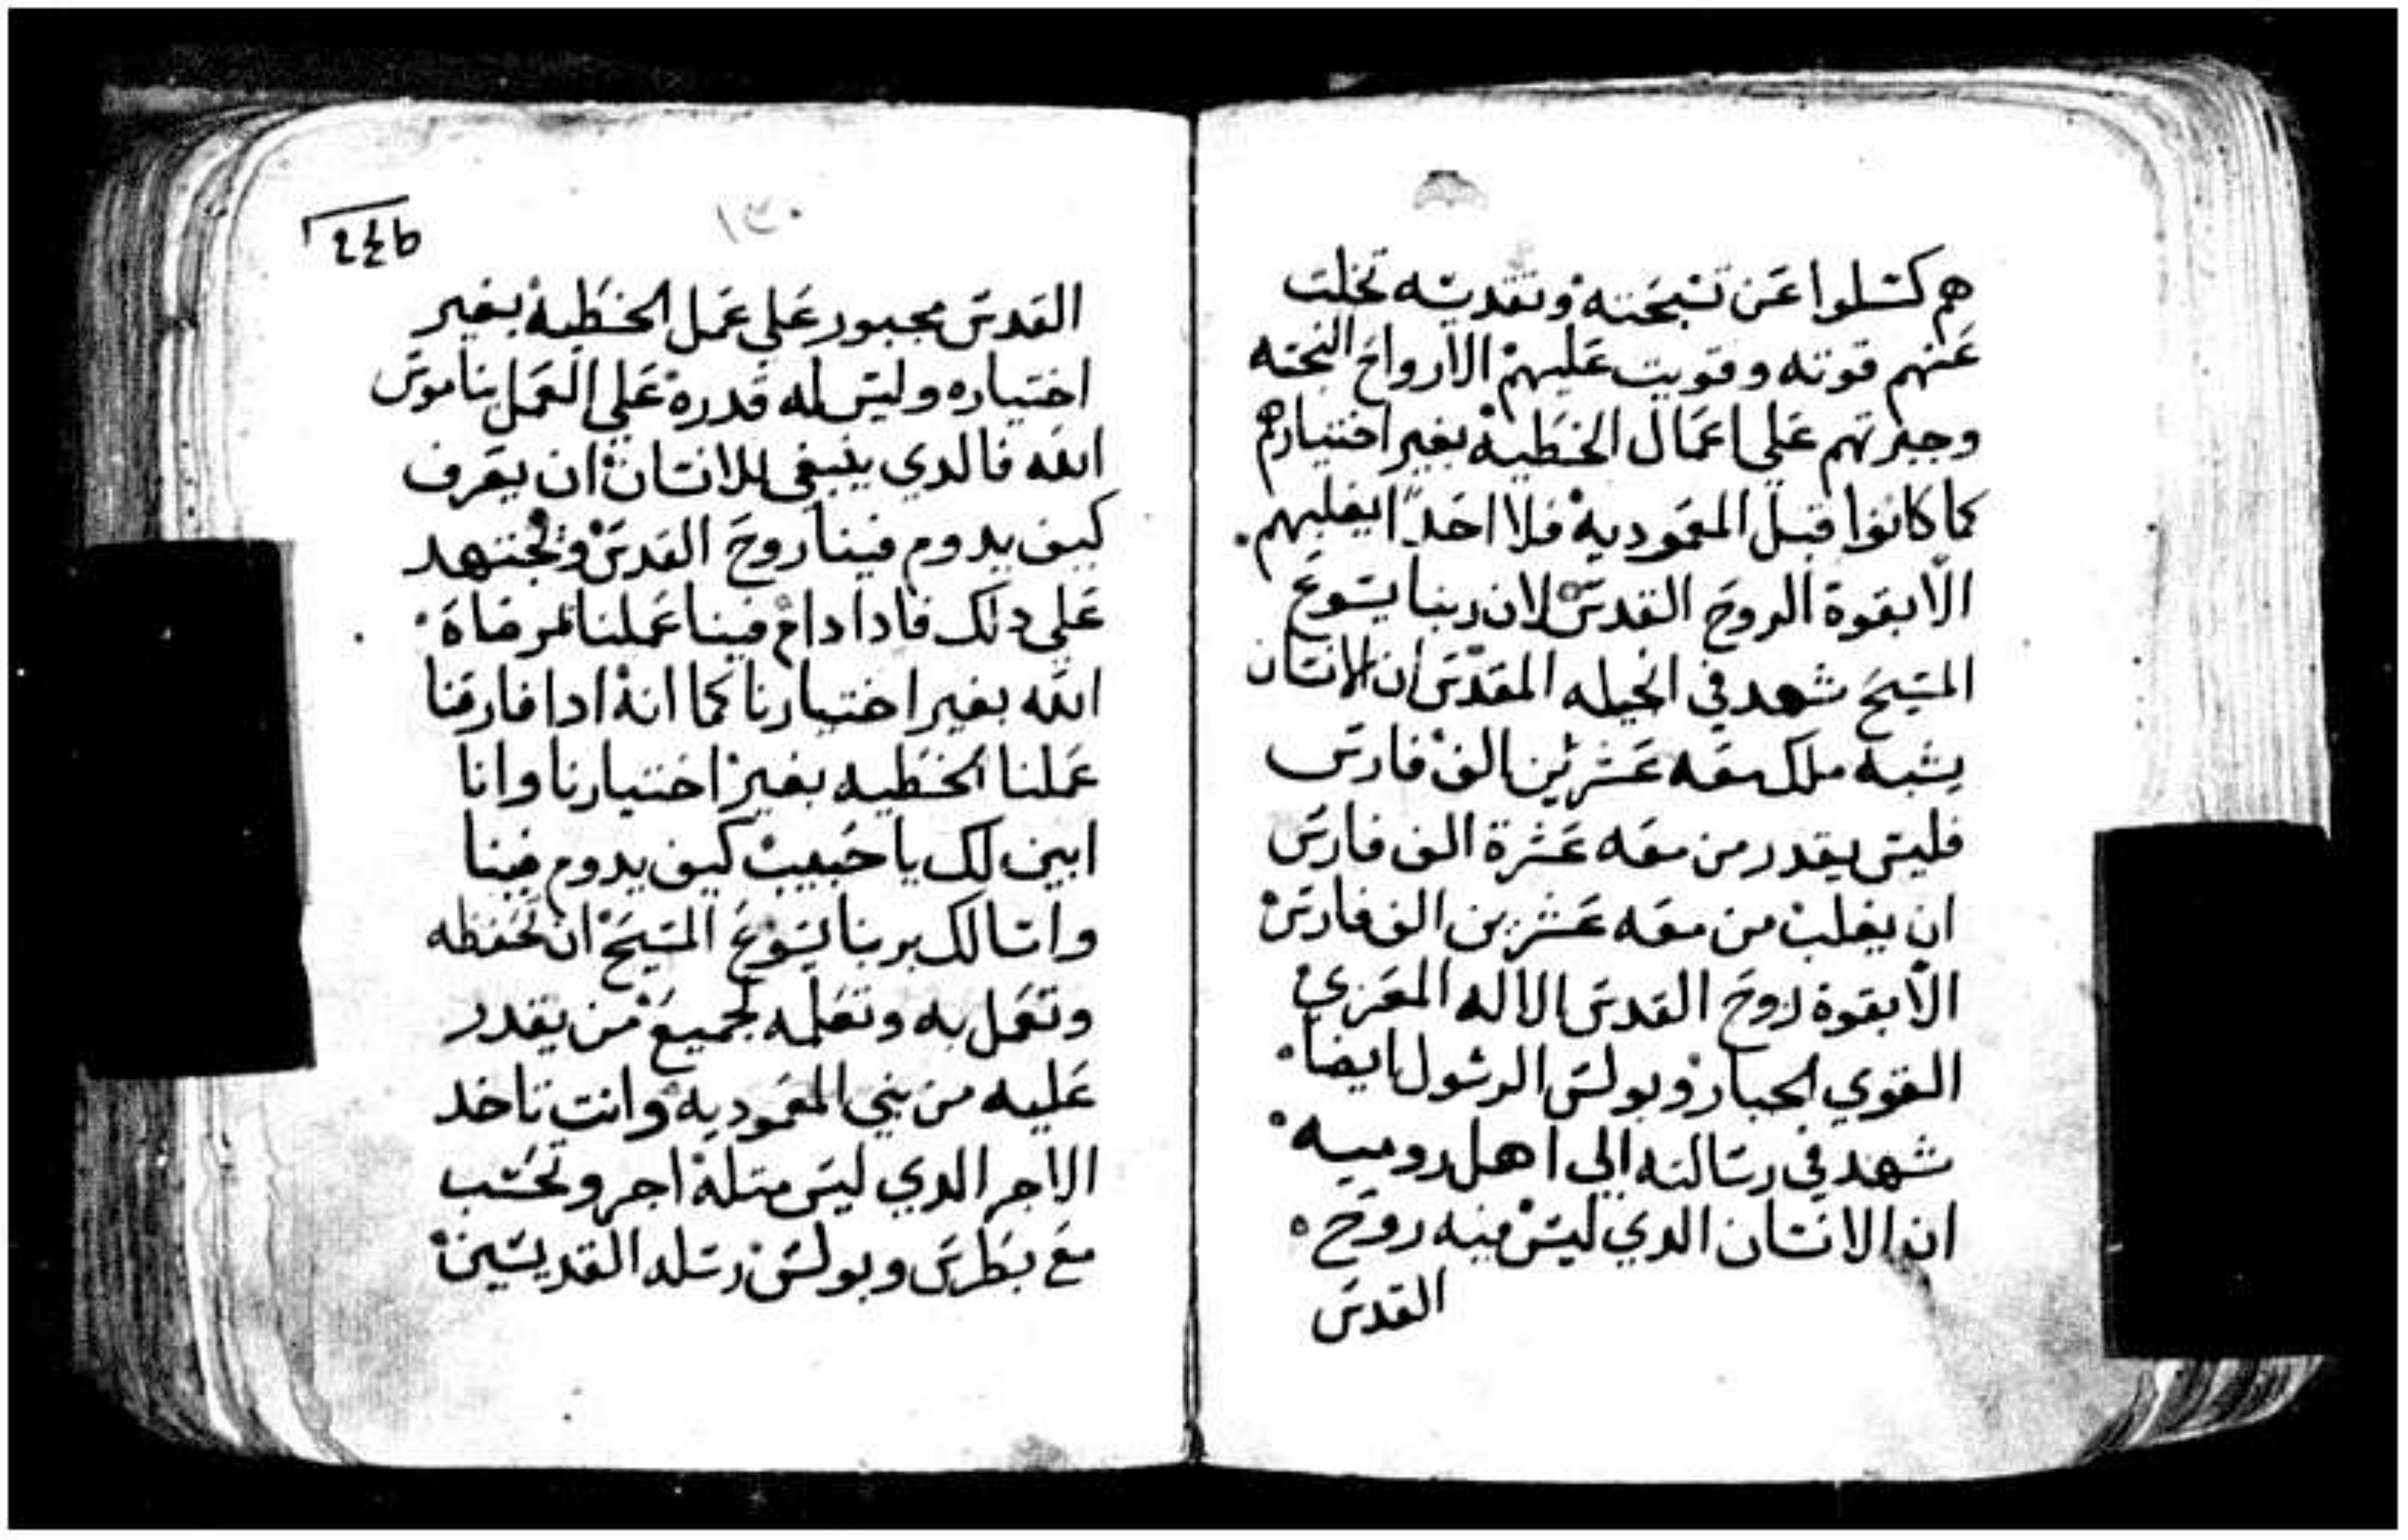 هم كسلوا عن تسبحته وتقديسه تخلت
عنهم قوته وقويت عليهم الارواح النجسه
وجبرتهم علي اعمال الخطية بغير اختيارهم
كما كانوا قبل المعمودية فلا احدًا يغلبهم.
الا بقوة الروح القدس لان ربنا يسوع
المسيح شهد في انجيله المقدس ان الانسان
يشبه ملك معه عشرين الف فارس
فليس يقدر من معه عشرة الف فارس
ان يغلب من معه عشرين الف فارس
الا بقوة روح القدس الاله المعزي
القوي الجبار وبولس الرسول ايضا.
شهد في رسالته الي اهل روميه.
ان الانسان الدي ليس فيه روح
القدس
١٣٠
القدس مجبور علي عمل الخطية بغير
اختياره وليس له قدرة علي العمل بناموس
الله فالدي ينبغي للانسان ان يعرف
كيف يدوم فينا روح القدس ونجتهد
علي دلك فادا دام فينا عملنا لمرضاة
الله بغير اختيارنا كما انه ادا فارقنا
عملنا الخطيه بغير اختيارنا وانا
ابين لك يا حبيب كيف يدوم فينا
واسالك بربنا يسوع المسيح ان تحفظه
وتعمل به وتعلمه لجميع من يقدر
عليه من بني المعموديه وانت تاخد
الاجر الدي ليس متله اجر وتحسب
مع بطرس وبولس رسله القديسين